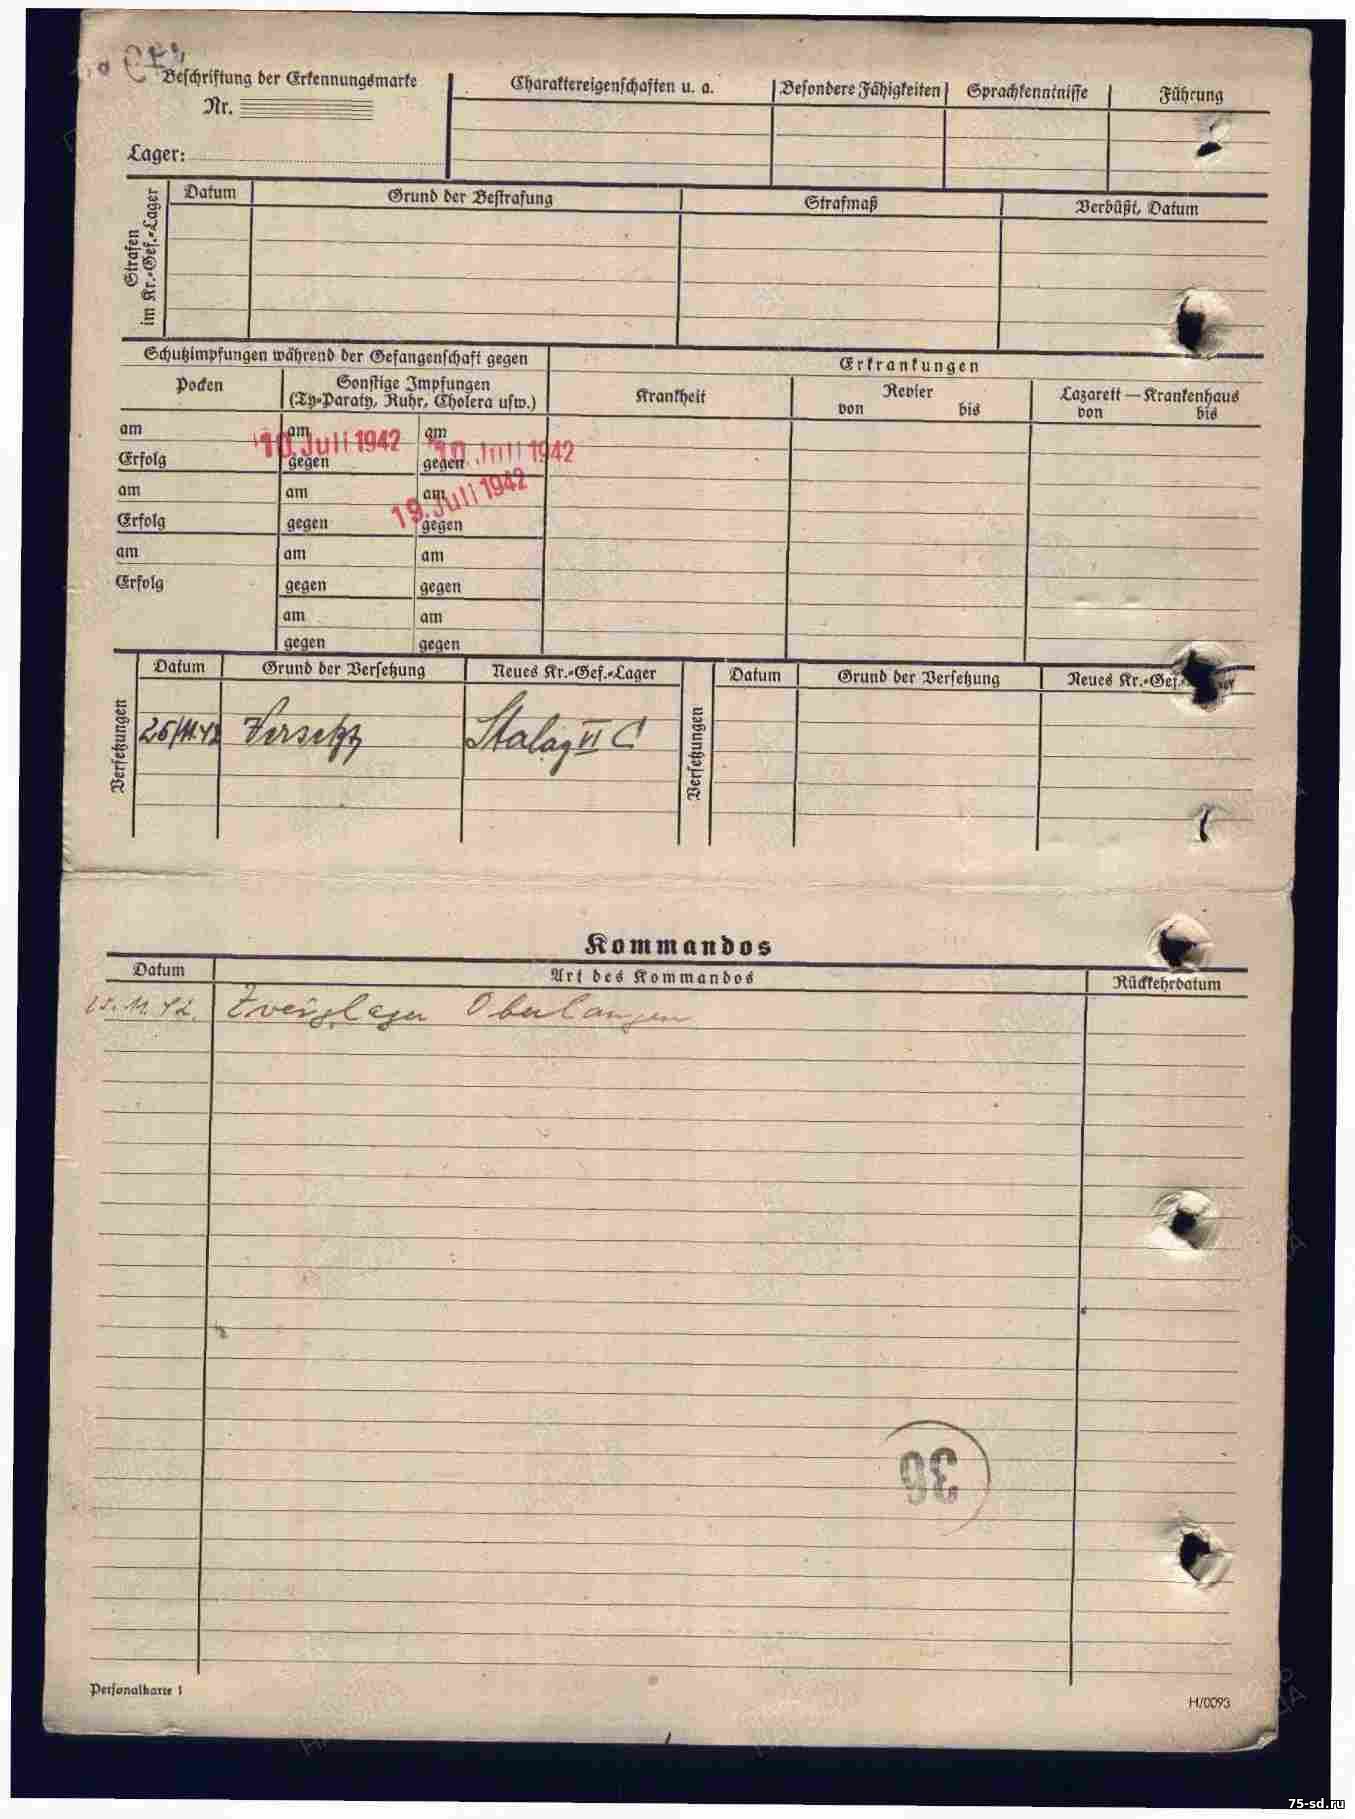 Beschriftung der Erkennungsmarke
Nr.
Lager:
Charaktereigenschaften u. a.
Besondere Fähigkeiten
Sprachkenntnisse
Führung
Strafen
im Kr.-Gef.-Lager
Datum
Grund der Bestrafung
Strafmaß
Verbüßt, Datum
Schutzimpfungen während der Gefangenschaft gegen
Erkrankungen
Pocken
Sonstige Impfungen
(Ty-Paraty, Ruhr, Cholera usw.)
Krankheit
Revier
von bis
Lazarett — Krankenhaus
von bis
am am am
10. Juli 1942 10. Juli 1942
Erfolg gegen gegen
am am am
19. Juli 1942
Erfolg gegen gegen
am am am
Erfolg gegen gegen
am am
gegen gegen
Versetzungen
Datum Grund der Versetzung Neues Kr.-Gef.-Lager
25/11.42 Versetzg Stalag VI C
Versetzungen
Datum Grund der Versetzung Neues Kr.-Gef.
Kommandos
Datum Art des Kommandos Rückkehrdatum
25.11.42. Zweiglager Oberlangen
36
Personalkarte 1
H/0093
75-sd.ru